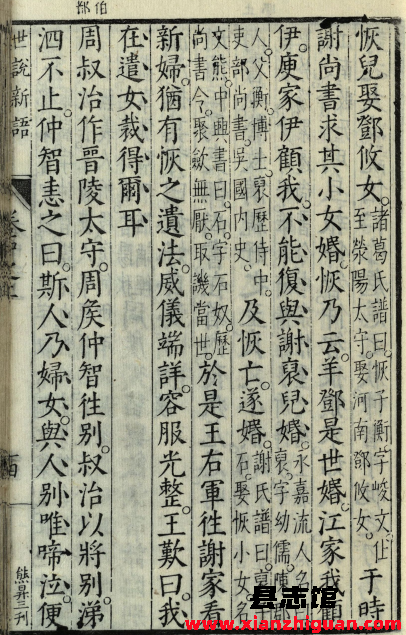 恢兒娶鄧攸女。
諸葛氏譜曰。恢子衡字峻文。仕
至滎陽太守。娶河南鄧攸女。
于時
謝尚書求其小女婚。恢乃云。羊鄧是世婚。江家我顧
伊。庾家伊顧我。不能復與謝裒兒婚。
永嘉流人名曰
裒字幼儒陳郡
人。父衡博士。裒歷侍中。
吏部尚書。吳國內史。
及恢亡。遂婚。
謝氏譜曰。裒子
石。娶恢小女名
文熊。中興書曰。石字石奴。歷
尚書令。聚斂無厭。取譏當世。
於是王右軍徃謝家看
新婦。猶有恢之遺法。威儀端詳。容服光整。王歎曰。我
在遣女裁得爾耳
周叔治作晉陵太守。周矦仲智徃別。叔治以將別。涕
泗不止。仲智恚之曰。斯人乃婦女。與人別唯啼泣。便
世說新語
熊昇三刊
县志馆
www.xianzhiguan.com